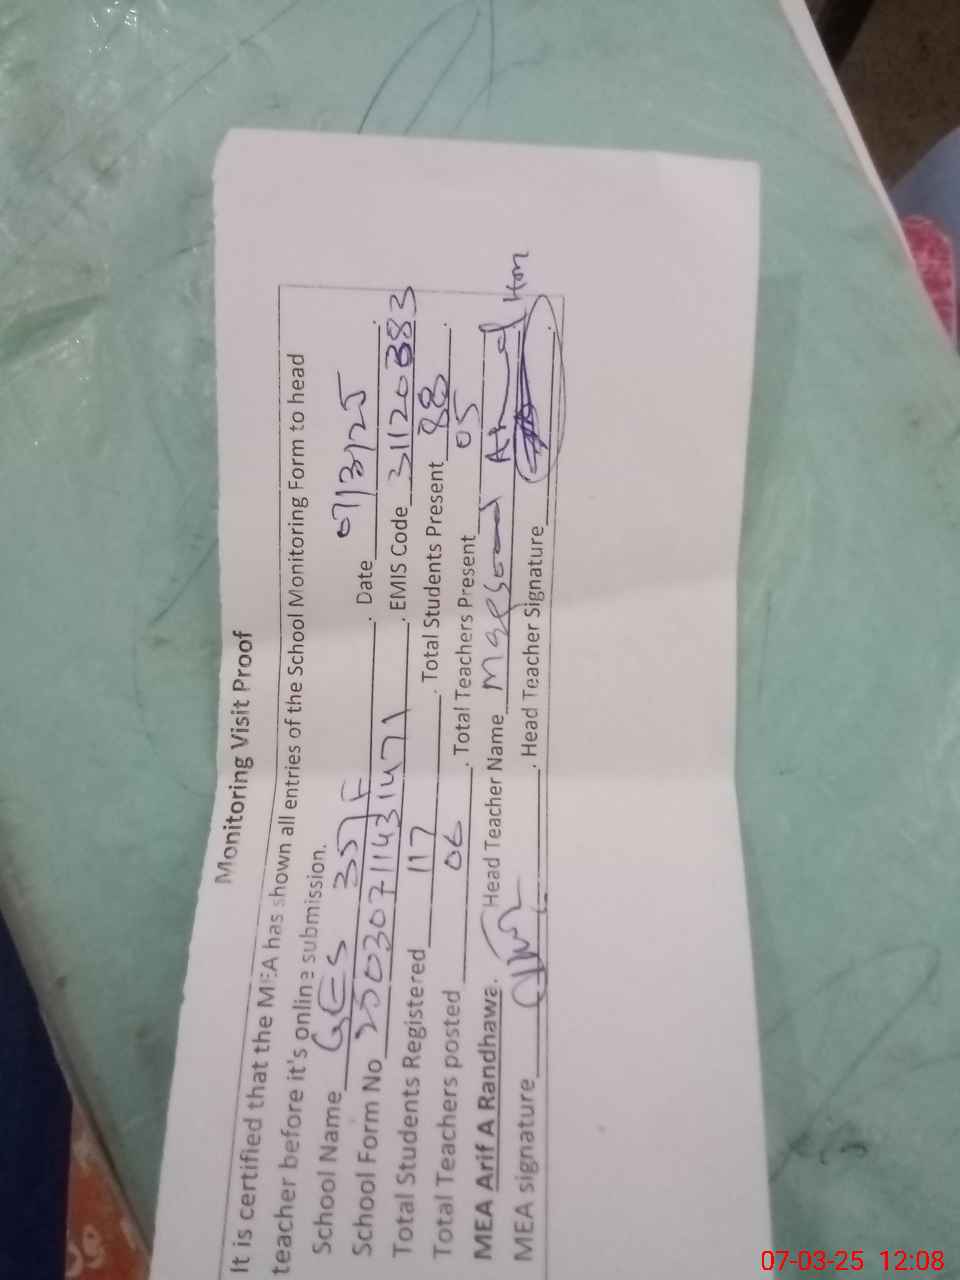 Monitoring Visit Proof
It is certified that the MEA has shown all entries of the School Monitoring Form to head
teacher before it's online submission.
School Name GES 357F . Date 07/3/25 .
School Form No 25030711431471 . EMIS Code 31120383
Total Students Registered 117 . Total Students Present 88 .
Total Teachers posted 06 . Total Teachers Present 05
MEA Arif A Randhawa. Head Teacher Name Maqsood Ahmed
MEA signature . Head Teacher Signature .
07-03-25 12:08